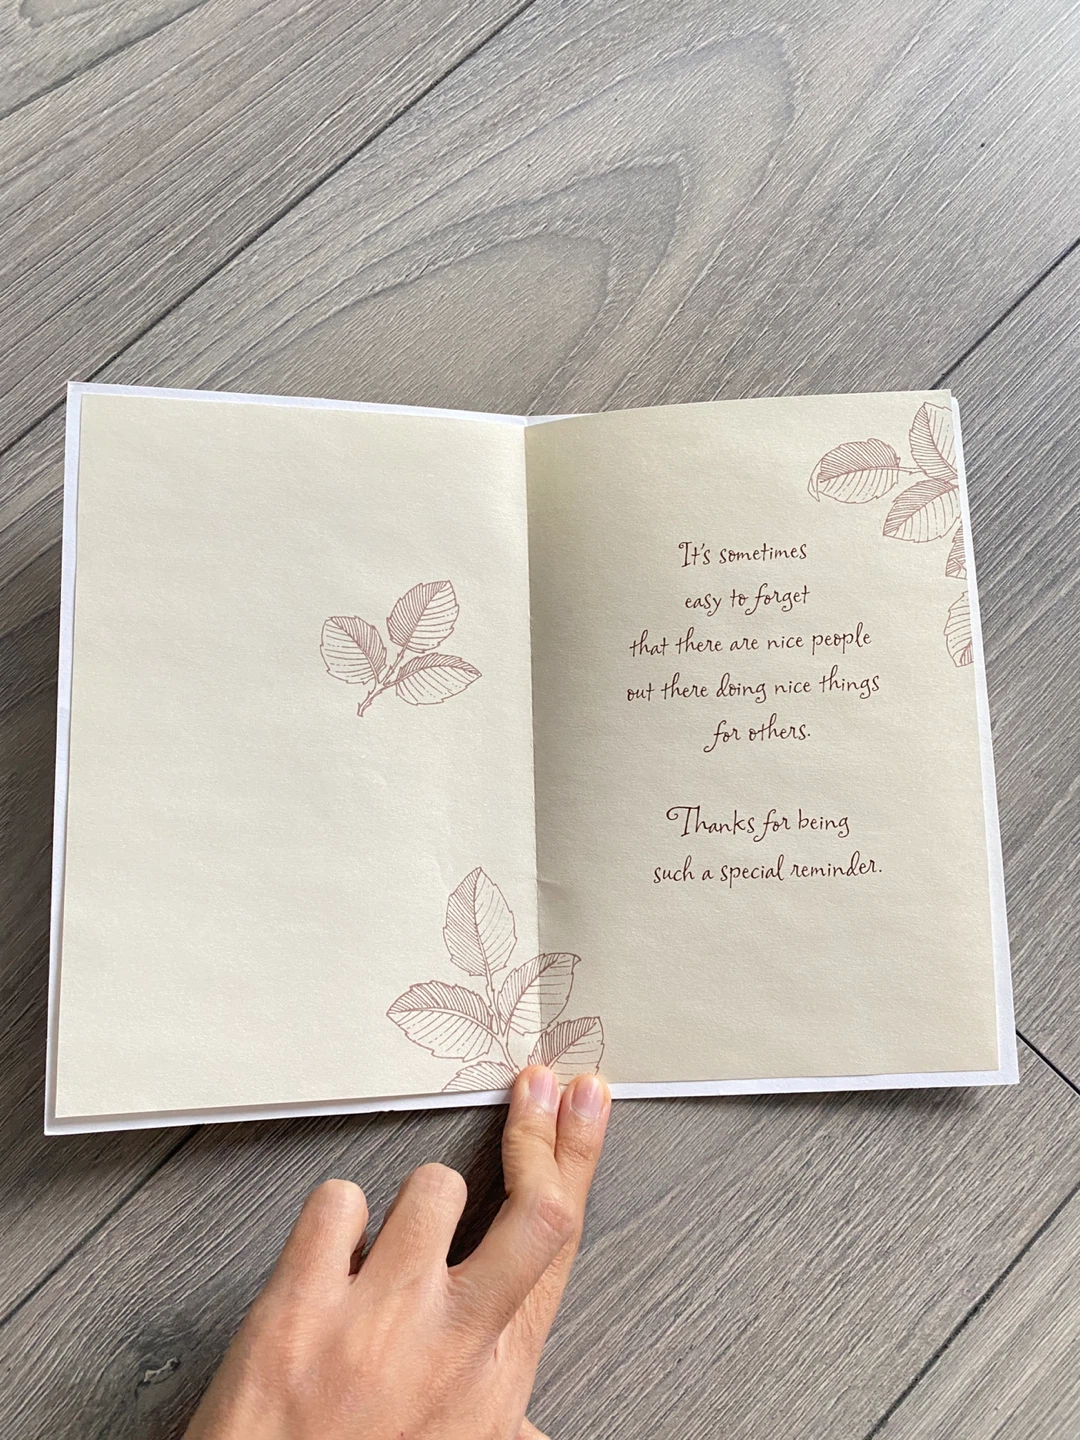 It's sometimes
easy to forget
that there are nice people
out there doing nice things
for others.
Thanks for being
such a special reminder.